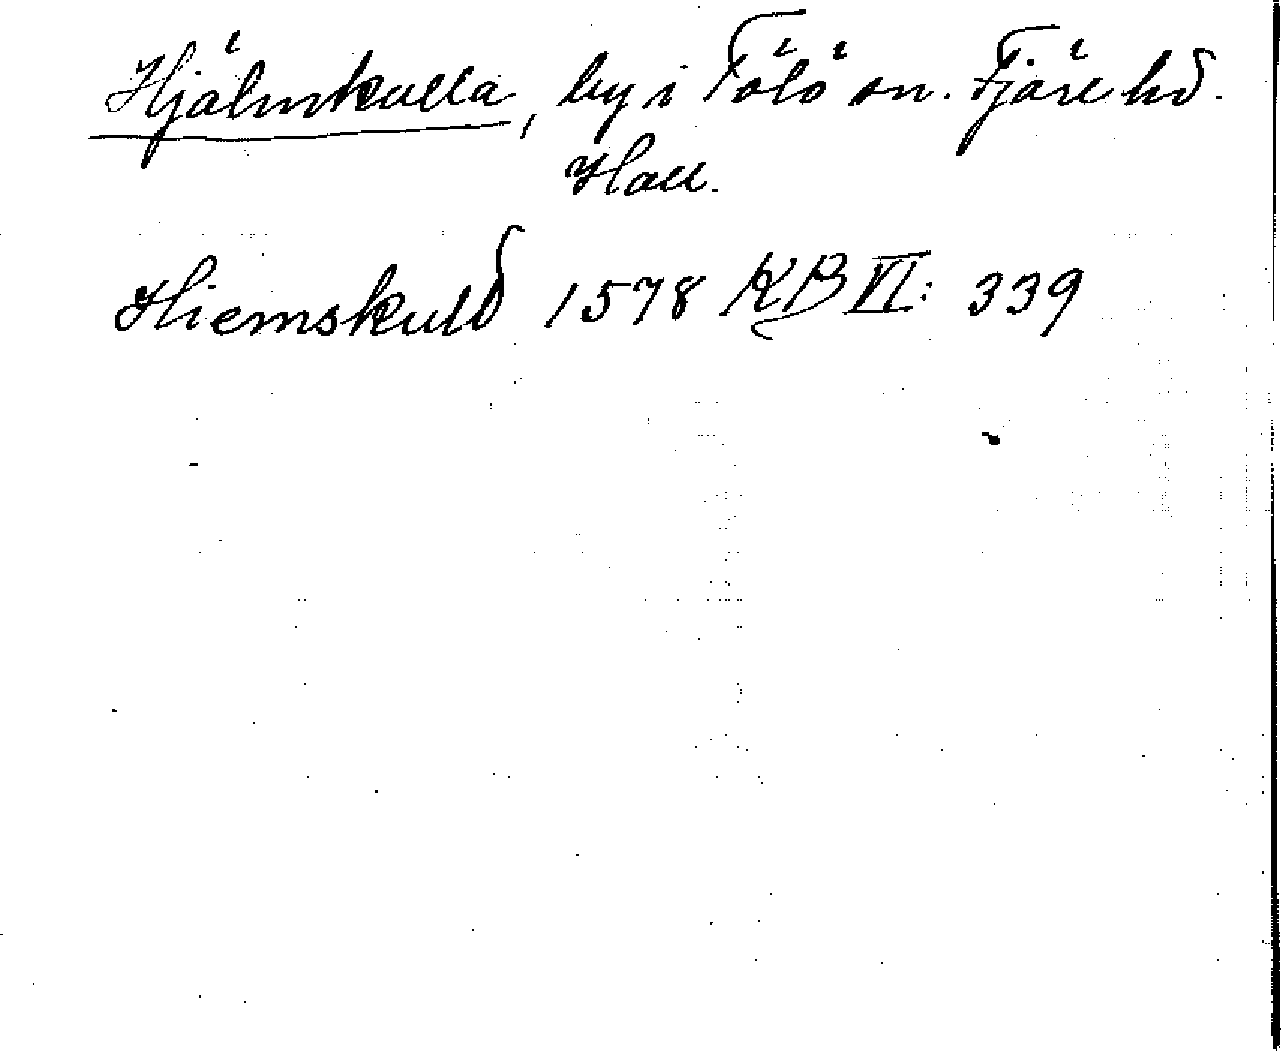 Hjälmkulla, by i Tölö sn. Fjäre hd.
Hall.
Hiemskuld 1578 KB VI: 339